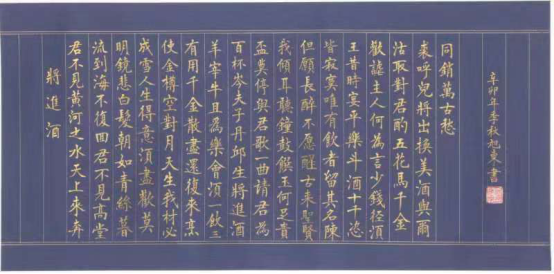 將進酒
君不見黃河之水天上來奔
流到海不復回君不見高堂
明鏡悲白髮朝如青絲暮
成雪人生得意須盡歡莫
使金樽空對月天生我材必
有用千金散盡還復來烹
羊宰牛且為樂會須一飲三
百杯岑夫子丹邱生將進酒
盃莫停與君歌一曲請君為
我傾耳聽鐘鼓饌玉何足貴
但願長醉不願醒古來聖賢
皆寂寞唯有飲者留其名陳
王昔時宴平樂斗酒十千恣
歡謔主人何為言少錢徑須
沽取對君酌五花馬千金
裘呼兒將出換美酒與爾
同銷萬古愁
辛卯年季秋旭東書